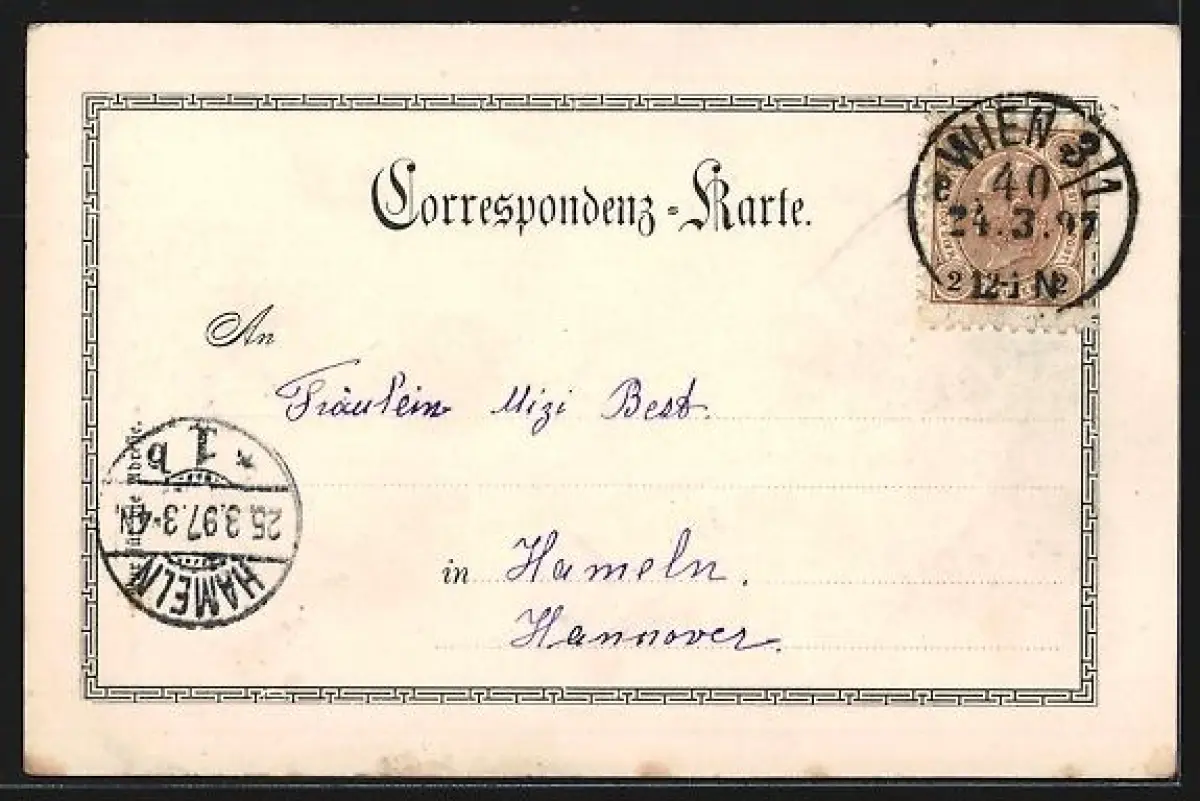 Correspondenz-Karte.
WIEN 3/1
40
24.3.97
12-1 N
2 2
An
Fräulein Mizi Best.
* 1 b
25.3.97.3-4N.
HAMELN
in Hameln.
Hannover.